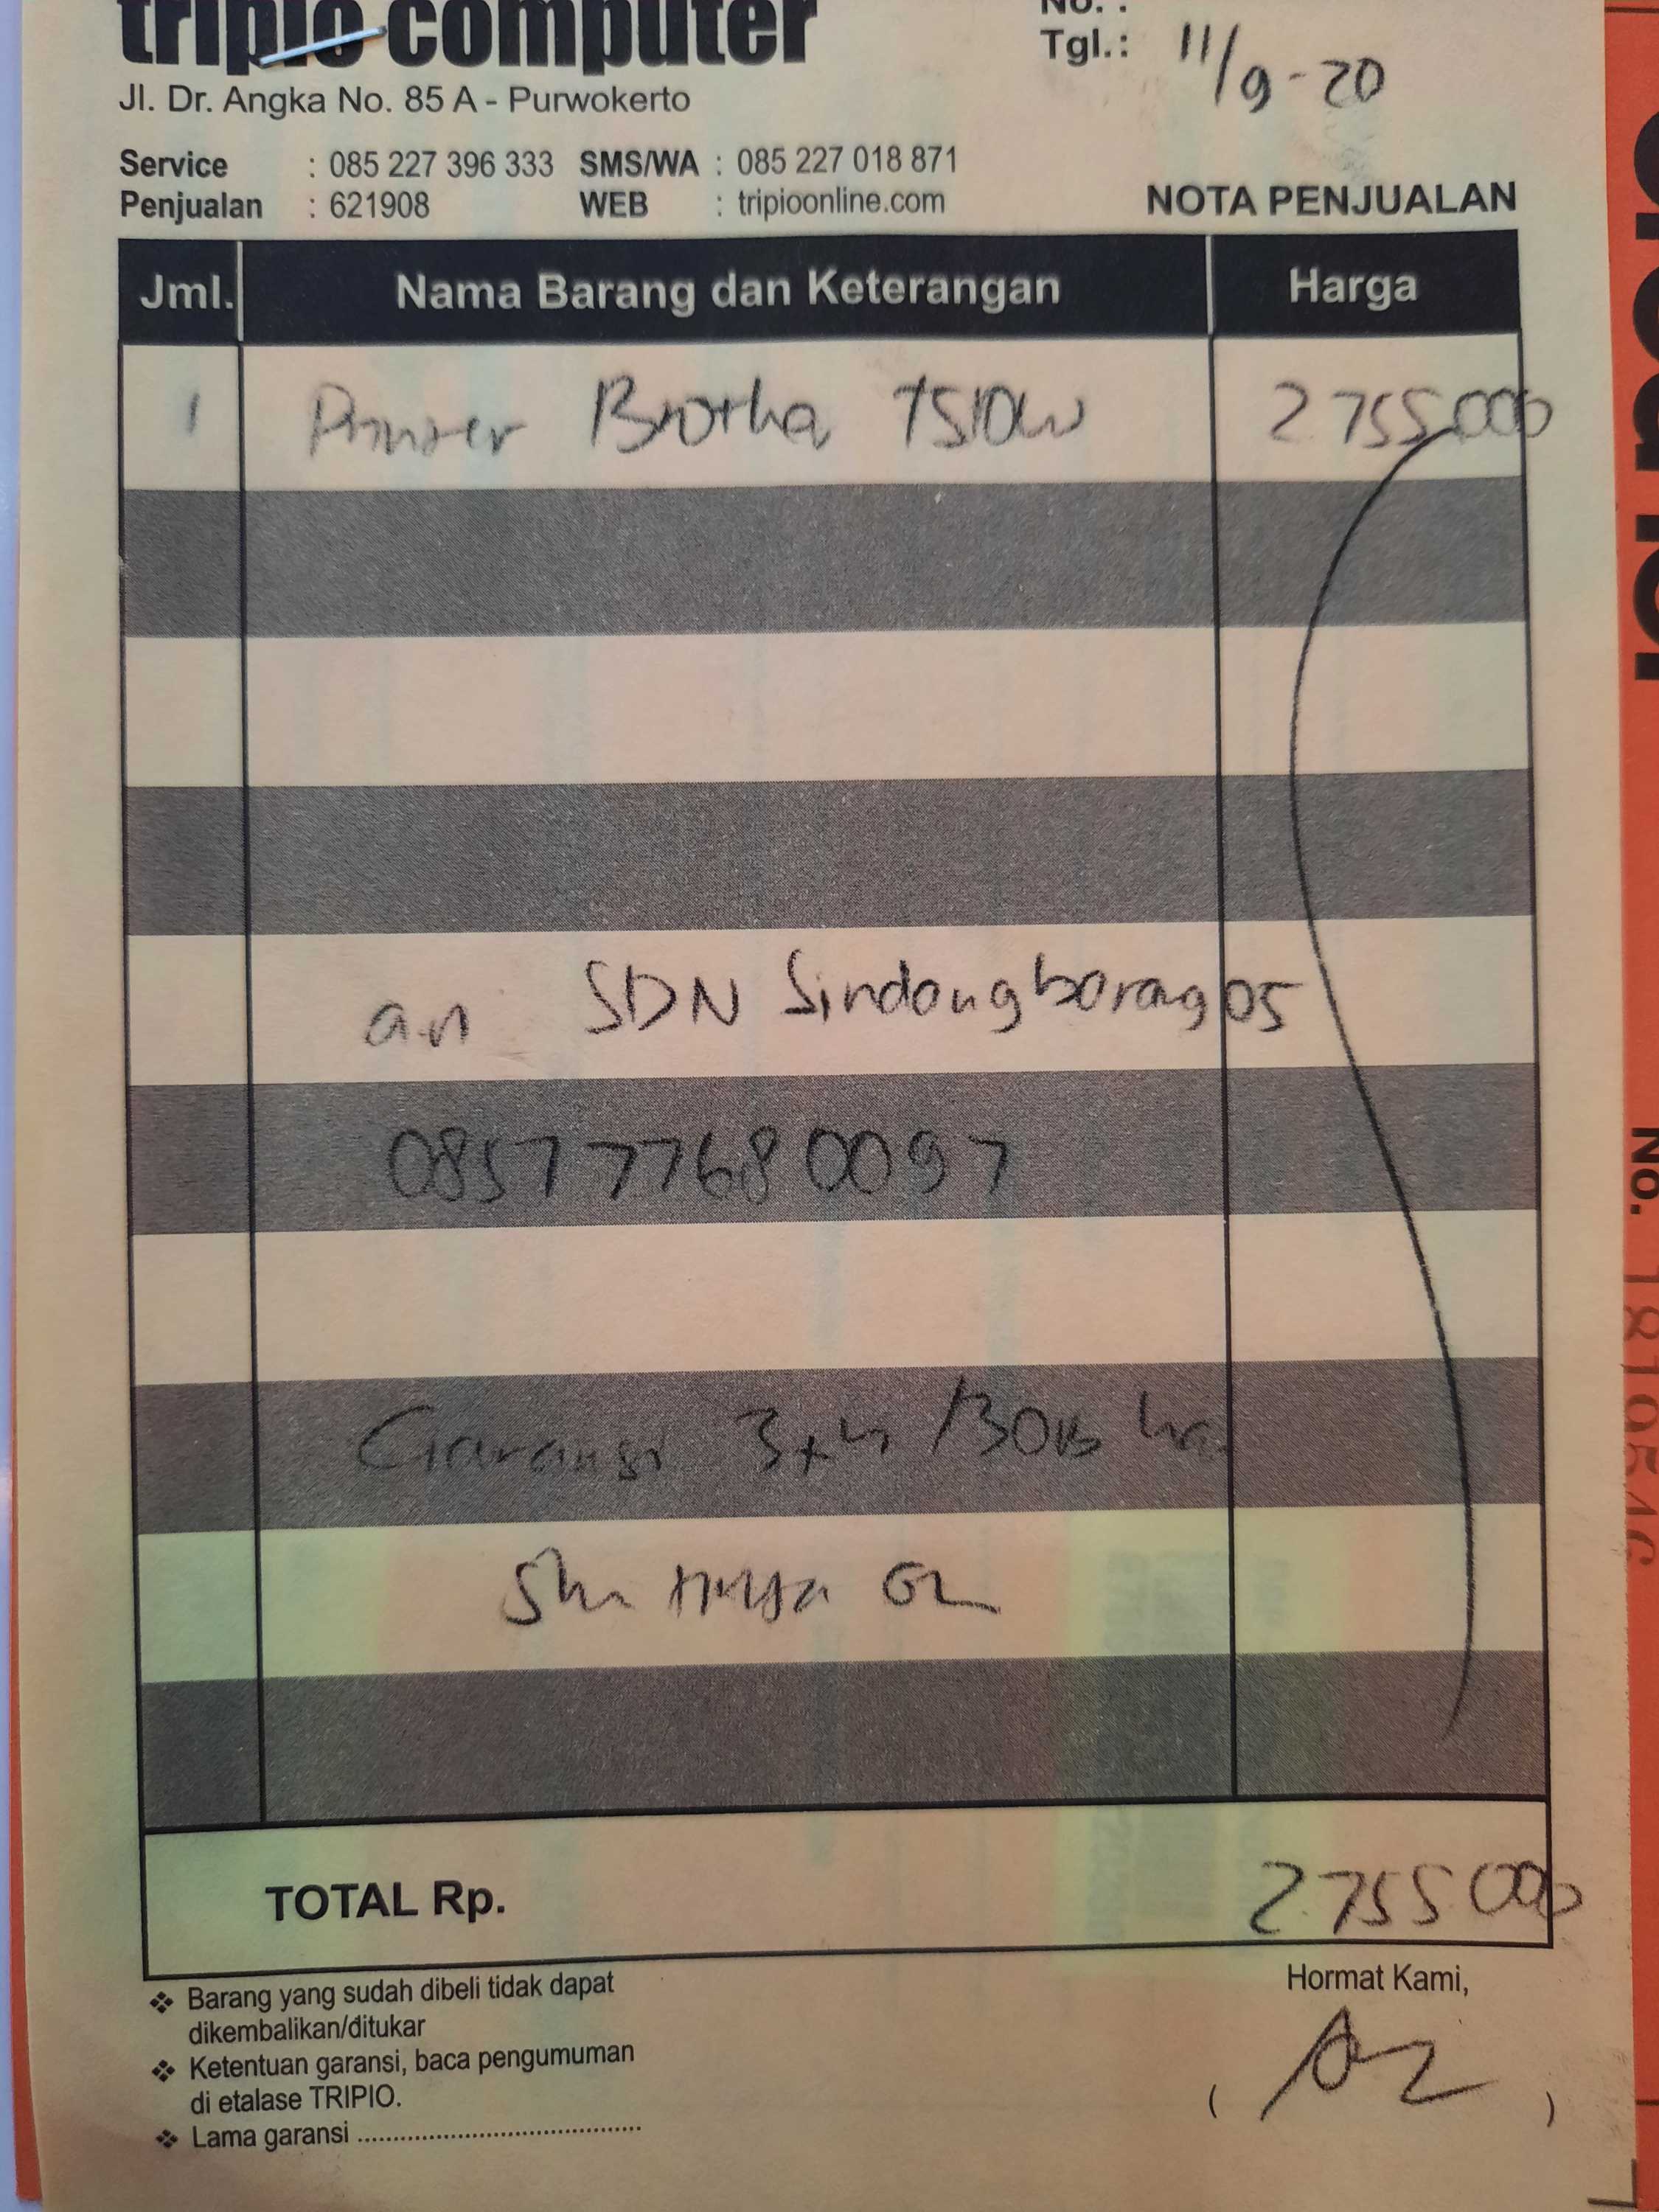 tripio computer
No. :
Tgl.: 11/9-20
Jl. Dr. Angka No. 85 A - Purwokerto
Service : 085 227 396 333 SMS/WA : 085 227 018 871
Penjualan : 621908 WEB : tripioonline.com
NOTA PENJUALAN
Jml. Nama Barang dan Keterangan Harga
1 Printer Brother T510W 2.755.000
an SDN Sindangbarang 05
085777680097
Garansi 3th /30rb
TOTAL Rp. 2.755.000
Hormat Kami,
❖ Barang yang sudah dibeli tidak dapat
dikembalikan/ditukar
❖ Ketentuan garansi, baca pengumuman
di etalase TRIPIO.
❖ Lama garansi ..........................................
( )
No.